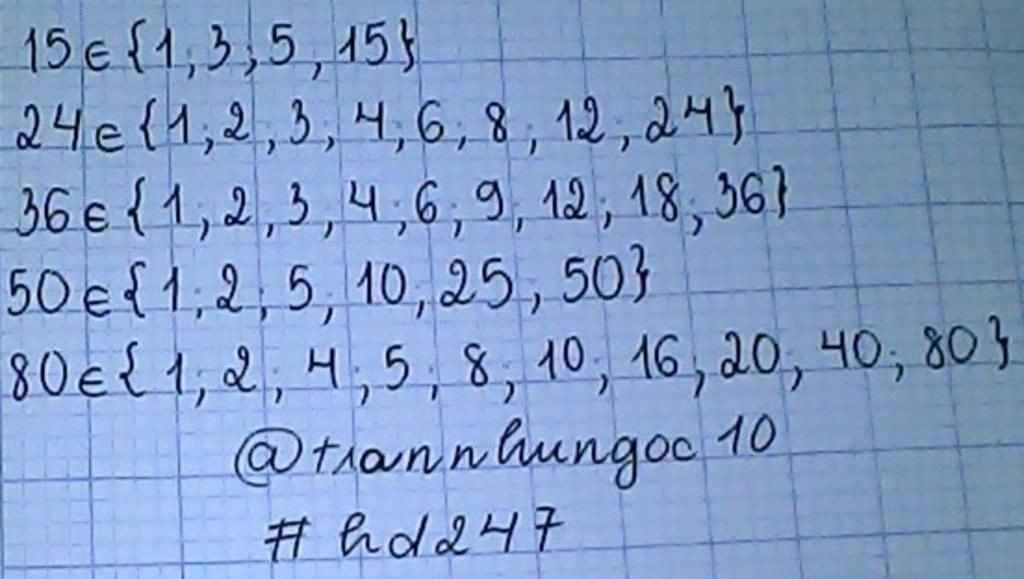 15 ∈ {1; 3; 5; 15}
24 ∈ {1; 2; 3; 4; 6; 8; 12; 24}
36 ∈ {1; 2; 3; 4; 6; 9; 12; 18; 36}
50 ∈ {1; 2; 5; 10; 25; 50}
80 ∈ {1; 2; 4; 5; 8; 10; 16; 20; 40; 80}
@trannhungoc10
#hd247